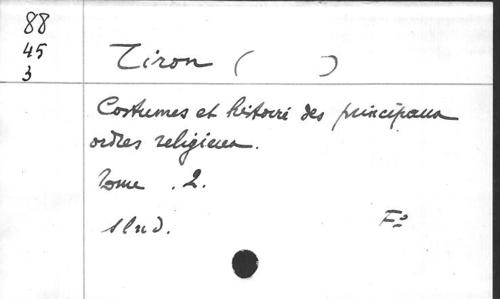 88
45
3
Tiron (          )
Costumes et histoire des principaux
ordres religieux.
Tome . 2.
s l n d.
Fº